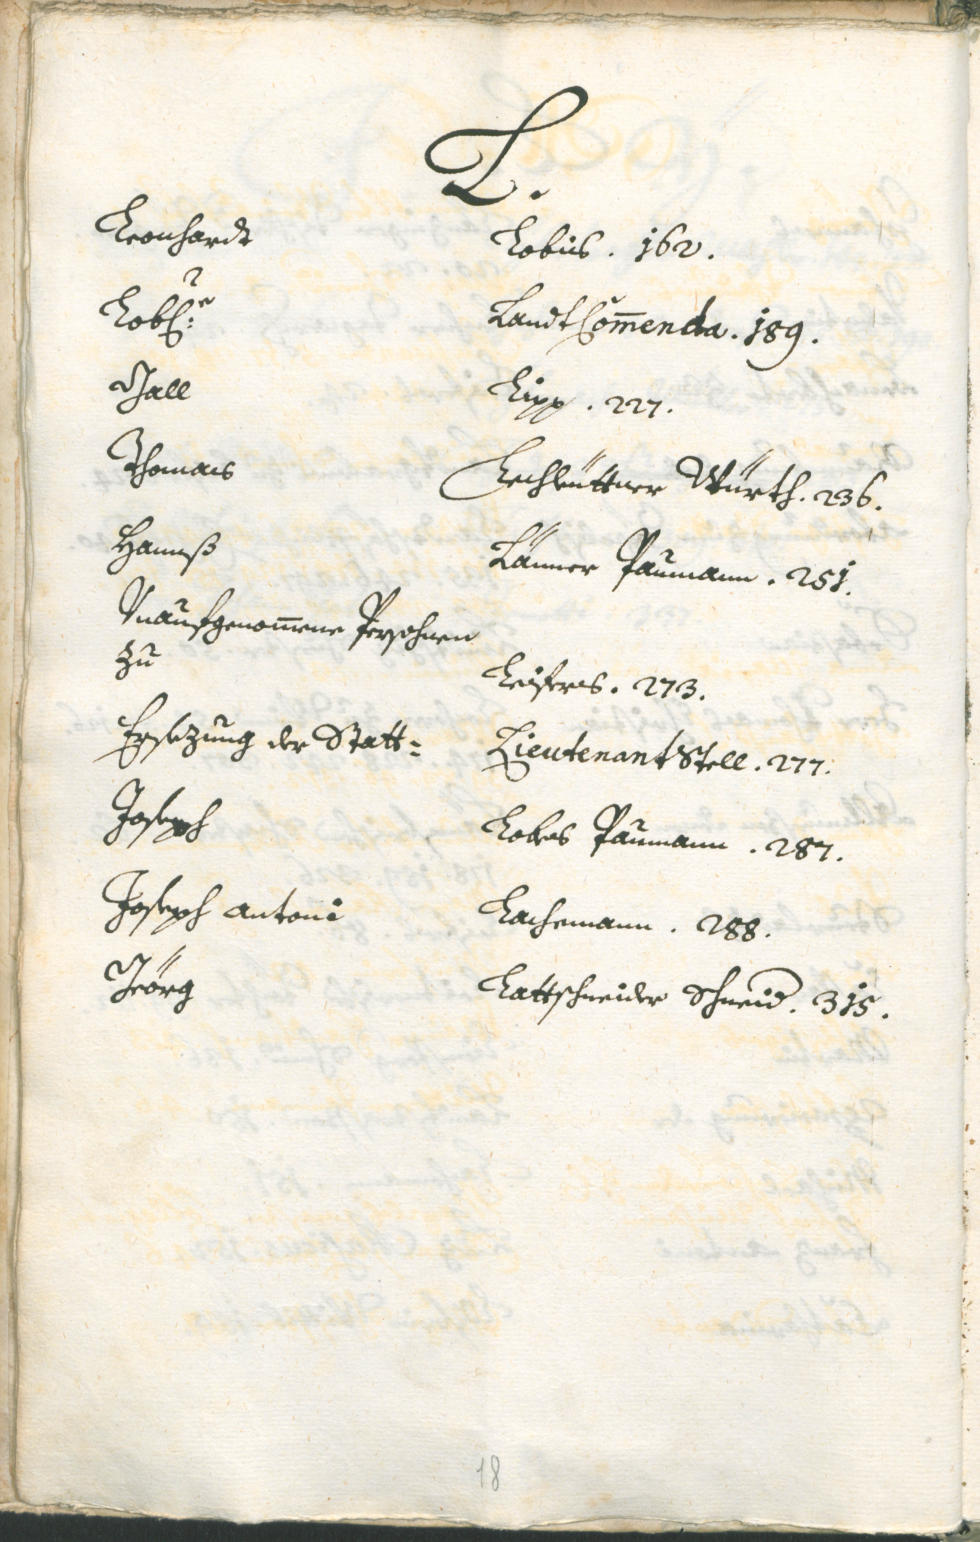 L.
Leonhardt Lobis. 162.
Löbl: LandtCom̅enda. 189.
Gall Lipp. 227.
Thomas Lechhüttner Würth. 236.
Hannß Länner Paumann. 251.
Vnaufgenom̅ene Persohnen
zu Leifers. 273.
Ersetzung der Statt= LieutenantStell. 277.
Joseph Lobis Paumann. 287.
Joseph Antoni Lachemann. 288.
Jeörg Lattschneider Schneid. 315.
18